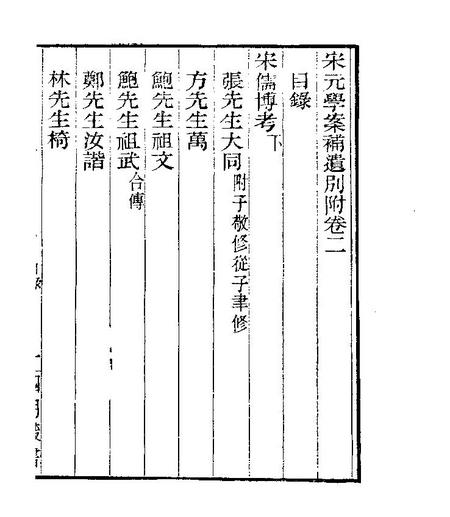 宋元學案補遺別附卷二
目錄
宋儒博考下
張先生大同附子敬修從子聿修
方先生萬
鮑先生祖文
鮑先生祖武合傳
鄭先生汝諧
林先生椅